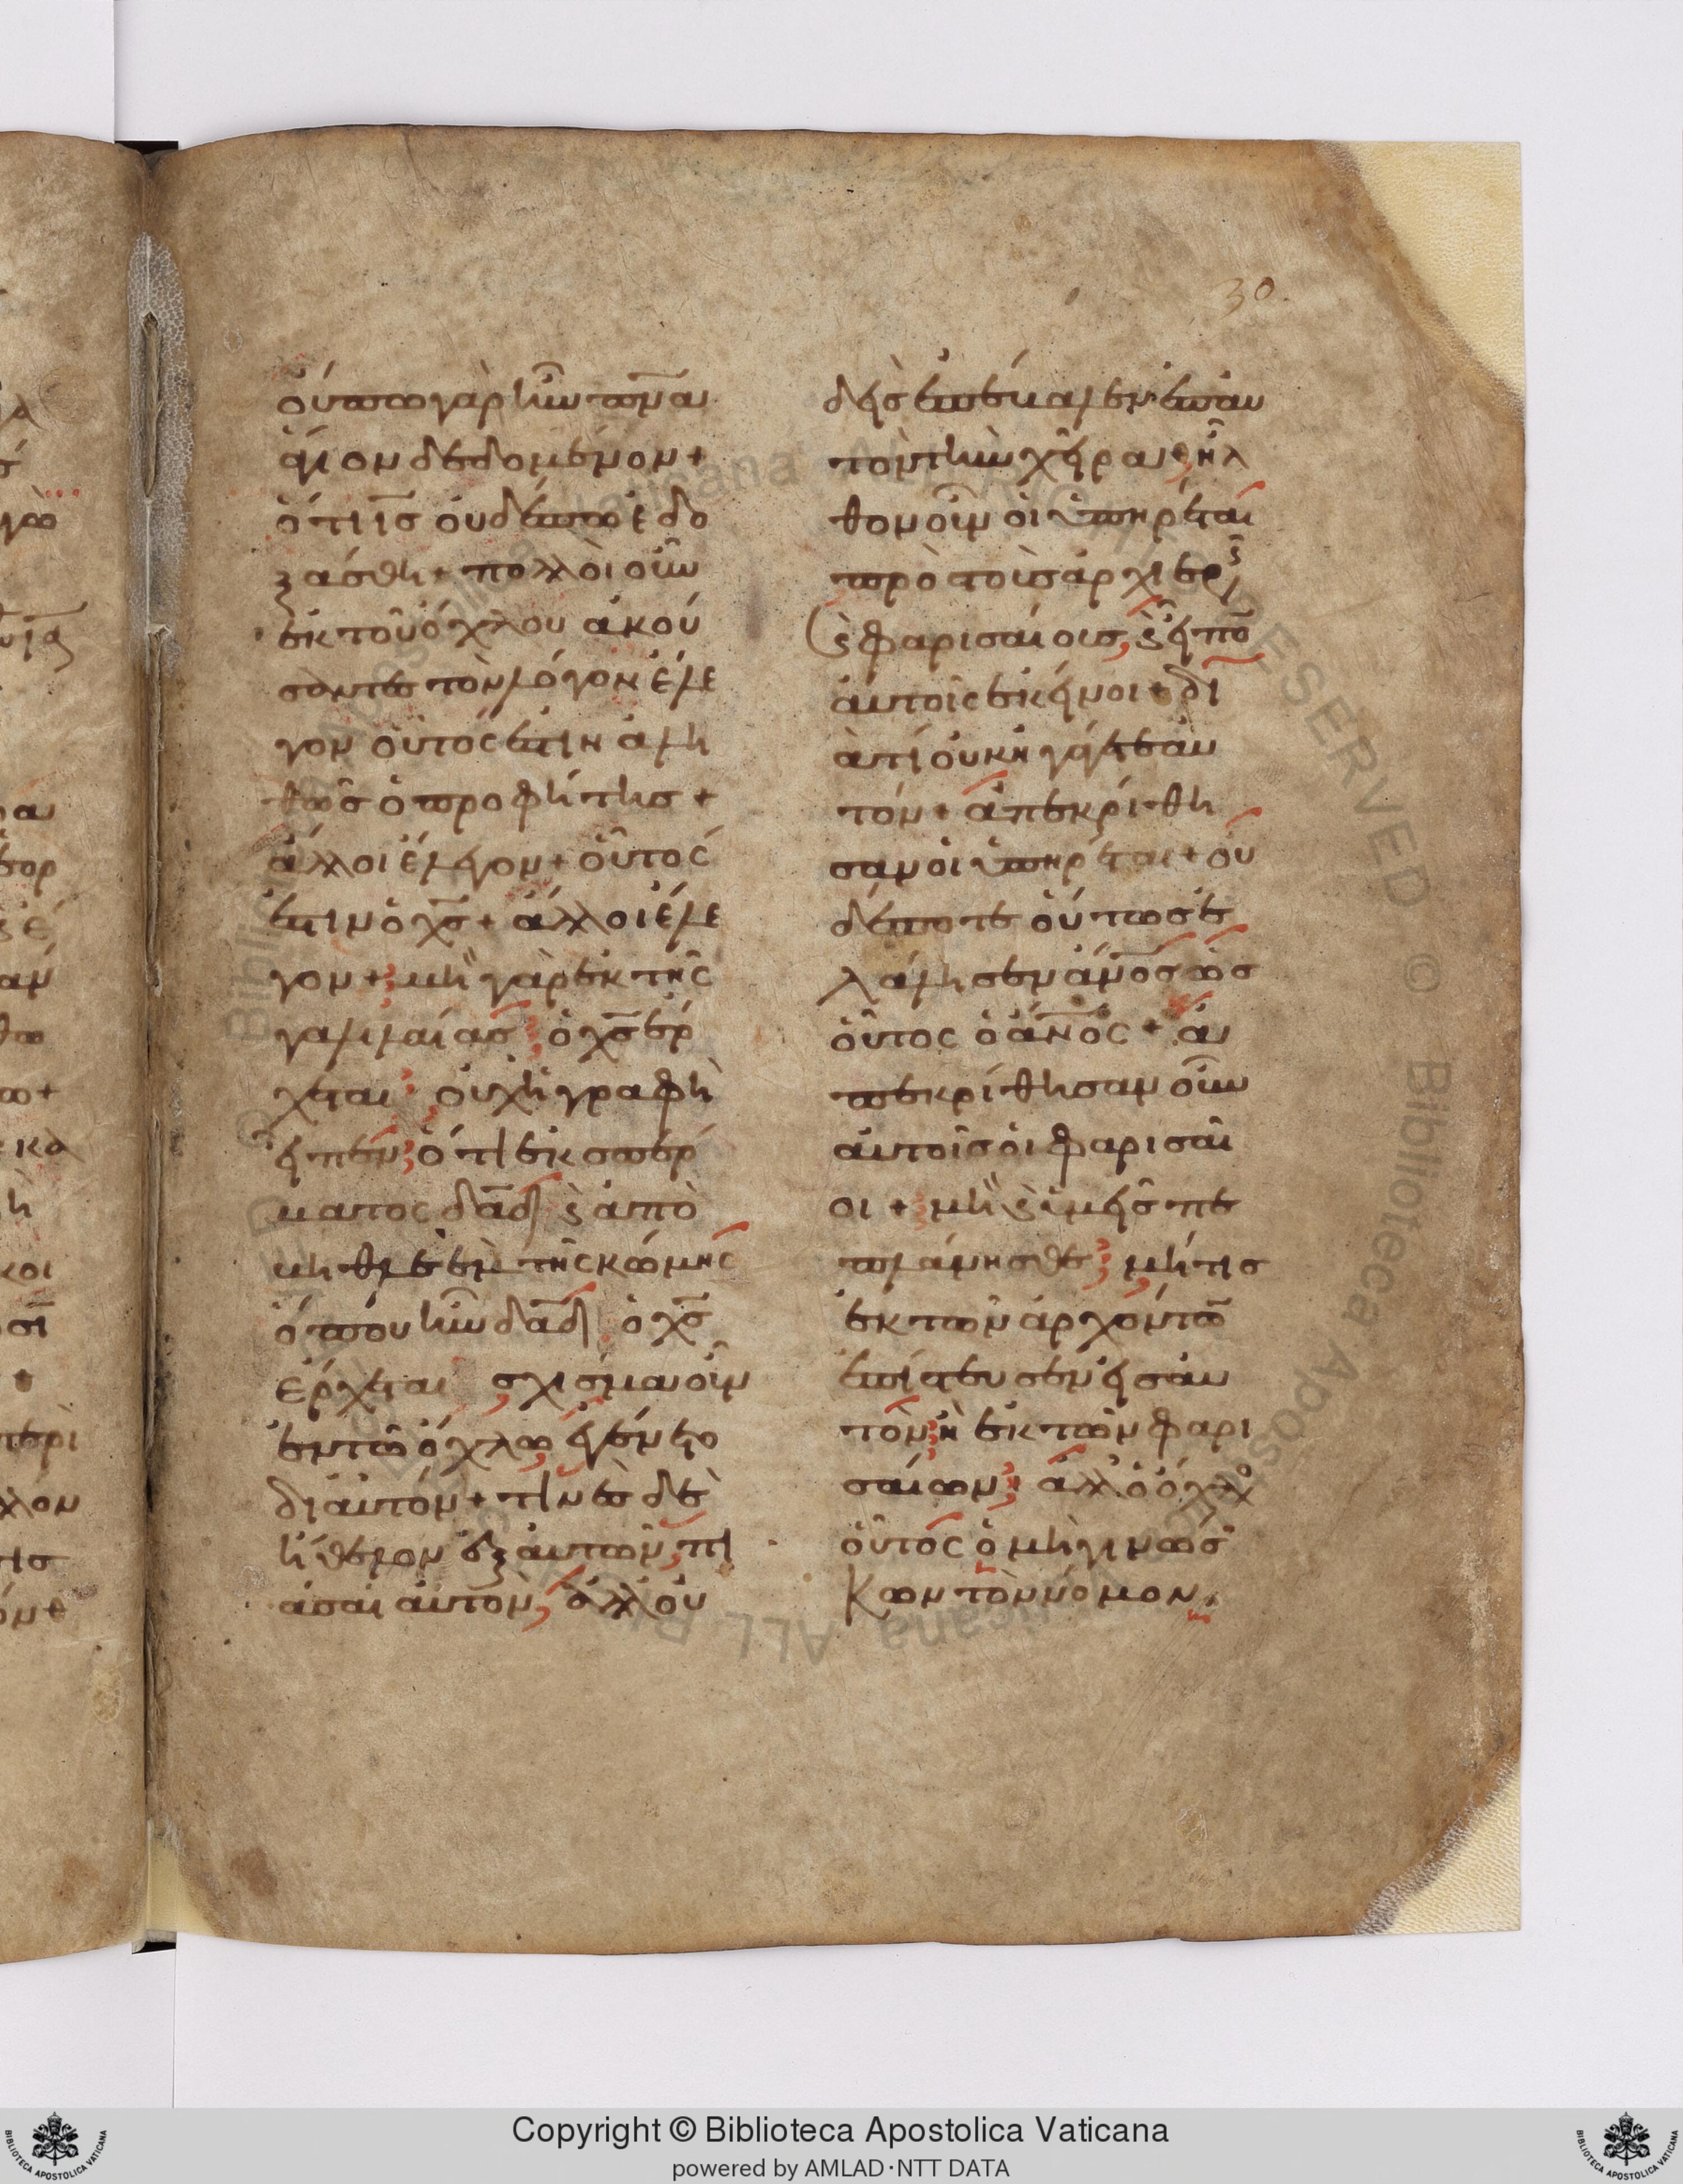 30.
ὄυπω γὰρ ἦν π̅ν̅α
ἅγιον δεδομένον +
ὅτι ι̅σ̅ ουδέπω ἐδο
ξάσθη + πολλοὶ οὖν
ἐκ τοῦ ὄχλου ἀκού
σαντες τὸν λόγον ἔλε
γον οὗτός ἐστιν ἀλη
θῶς ὁ προφήτης +
ἄλλοι ἔλεγον + οὗτός
ἐστιν ὁ χ̅σ̅ + ἄλλοι ἔλε
γον + μὴ γὰρ ἐκ τῆς
γαλιλαίας ὁ χ̅σ̅ ἔρ
χεται; οὐχὶ ἡ γραφὴ
εἶπεν, ὅτι ἐκ σπέρ
ματος δ̅α̅δ̅ ϗ ἀπὸ
μηθλεὲμ τῆς κώμης
ὅπου ἦν δ̅α̅δ̅ ὁ χ̅σ̅
ἔρχεται σχίσμα οὖν
ἐν τῶ ὄχλω ἐγένετο
δι αὐτόν + τινὲς δὲ
ἤθελον ἐξ αὐτῶν, πι
άσαι αὐτὸν, ἀλλ οὐ
δεὶς ἐπέβαλεν ἐπ αυ
τὸν τὴν χεῖρα + ἦλ
θον οὖν οἱ ὑπηρέται
πρὸς τοὺς ἀρχιερεῖς
ϗ φαρισαίους, ϗ εἶπο̅
αὐτοῖς ἐκεῖνοι + δι
ὰ τί οὐκ ἠγάγετε αὐ
τόν + ἀπεκρίθη
σαν οἱ ὑπηρέται + οὐ
δέποτε οὕτως ἐ
λάλησεν α̅ν̅ο̅σ̅ ὡς
οὗτος ὁ α̅ν̅ο̅ς̅ + ἀ
πεκρίθησαν οὖν
αὐτοῖς οἱ φαρισαῖ
οι + μὴ ϗ ὑμεῖς πε
πλάνησθε; μήτις
ἐκ τῶν ἀρχόντω̅
ἐπίστευσεν εἰς αὐ
τὸν; ἢ ἐκ τῶν φαρι
σαίων; ἀλλ ὁ ὄχλο
οὗτος ὁ μὴ γινώσ
κων τὸν νόμον.
Copyright © Biblioteca Apostolica Vaticana
powered by AMLAD·NTT DATA